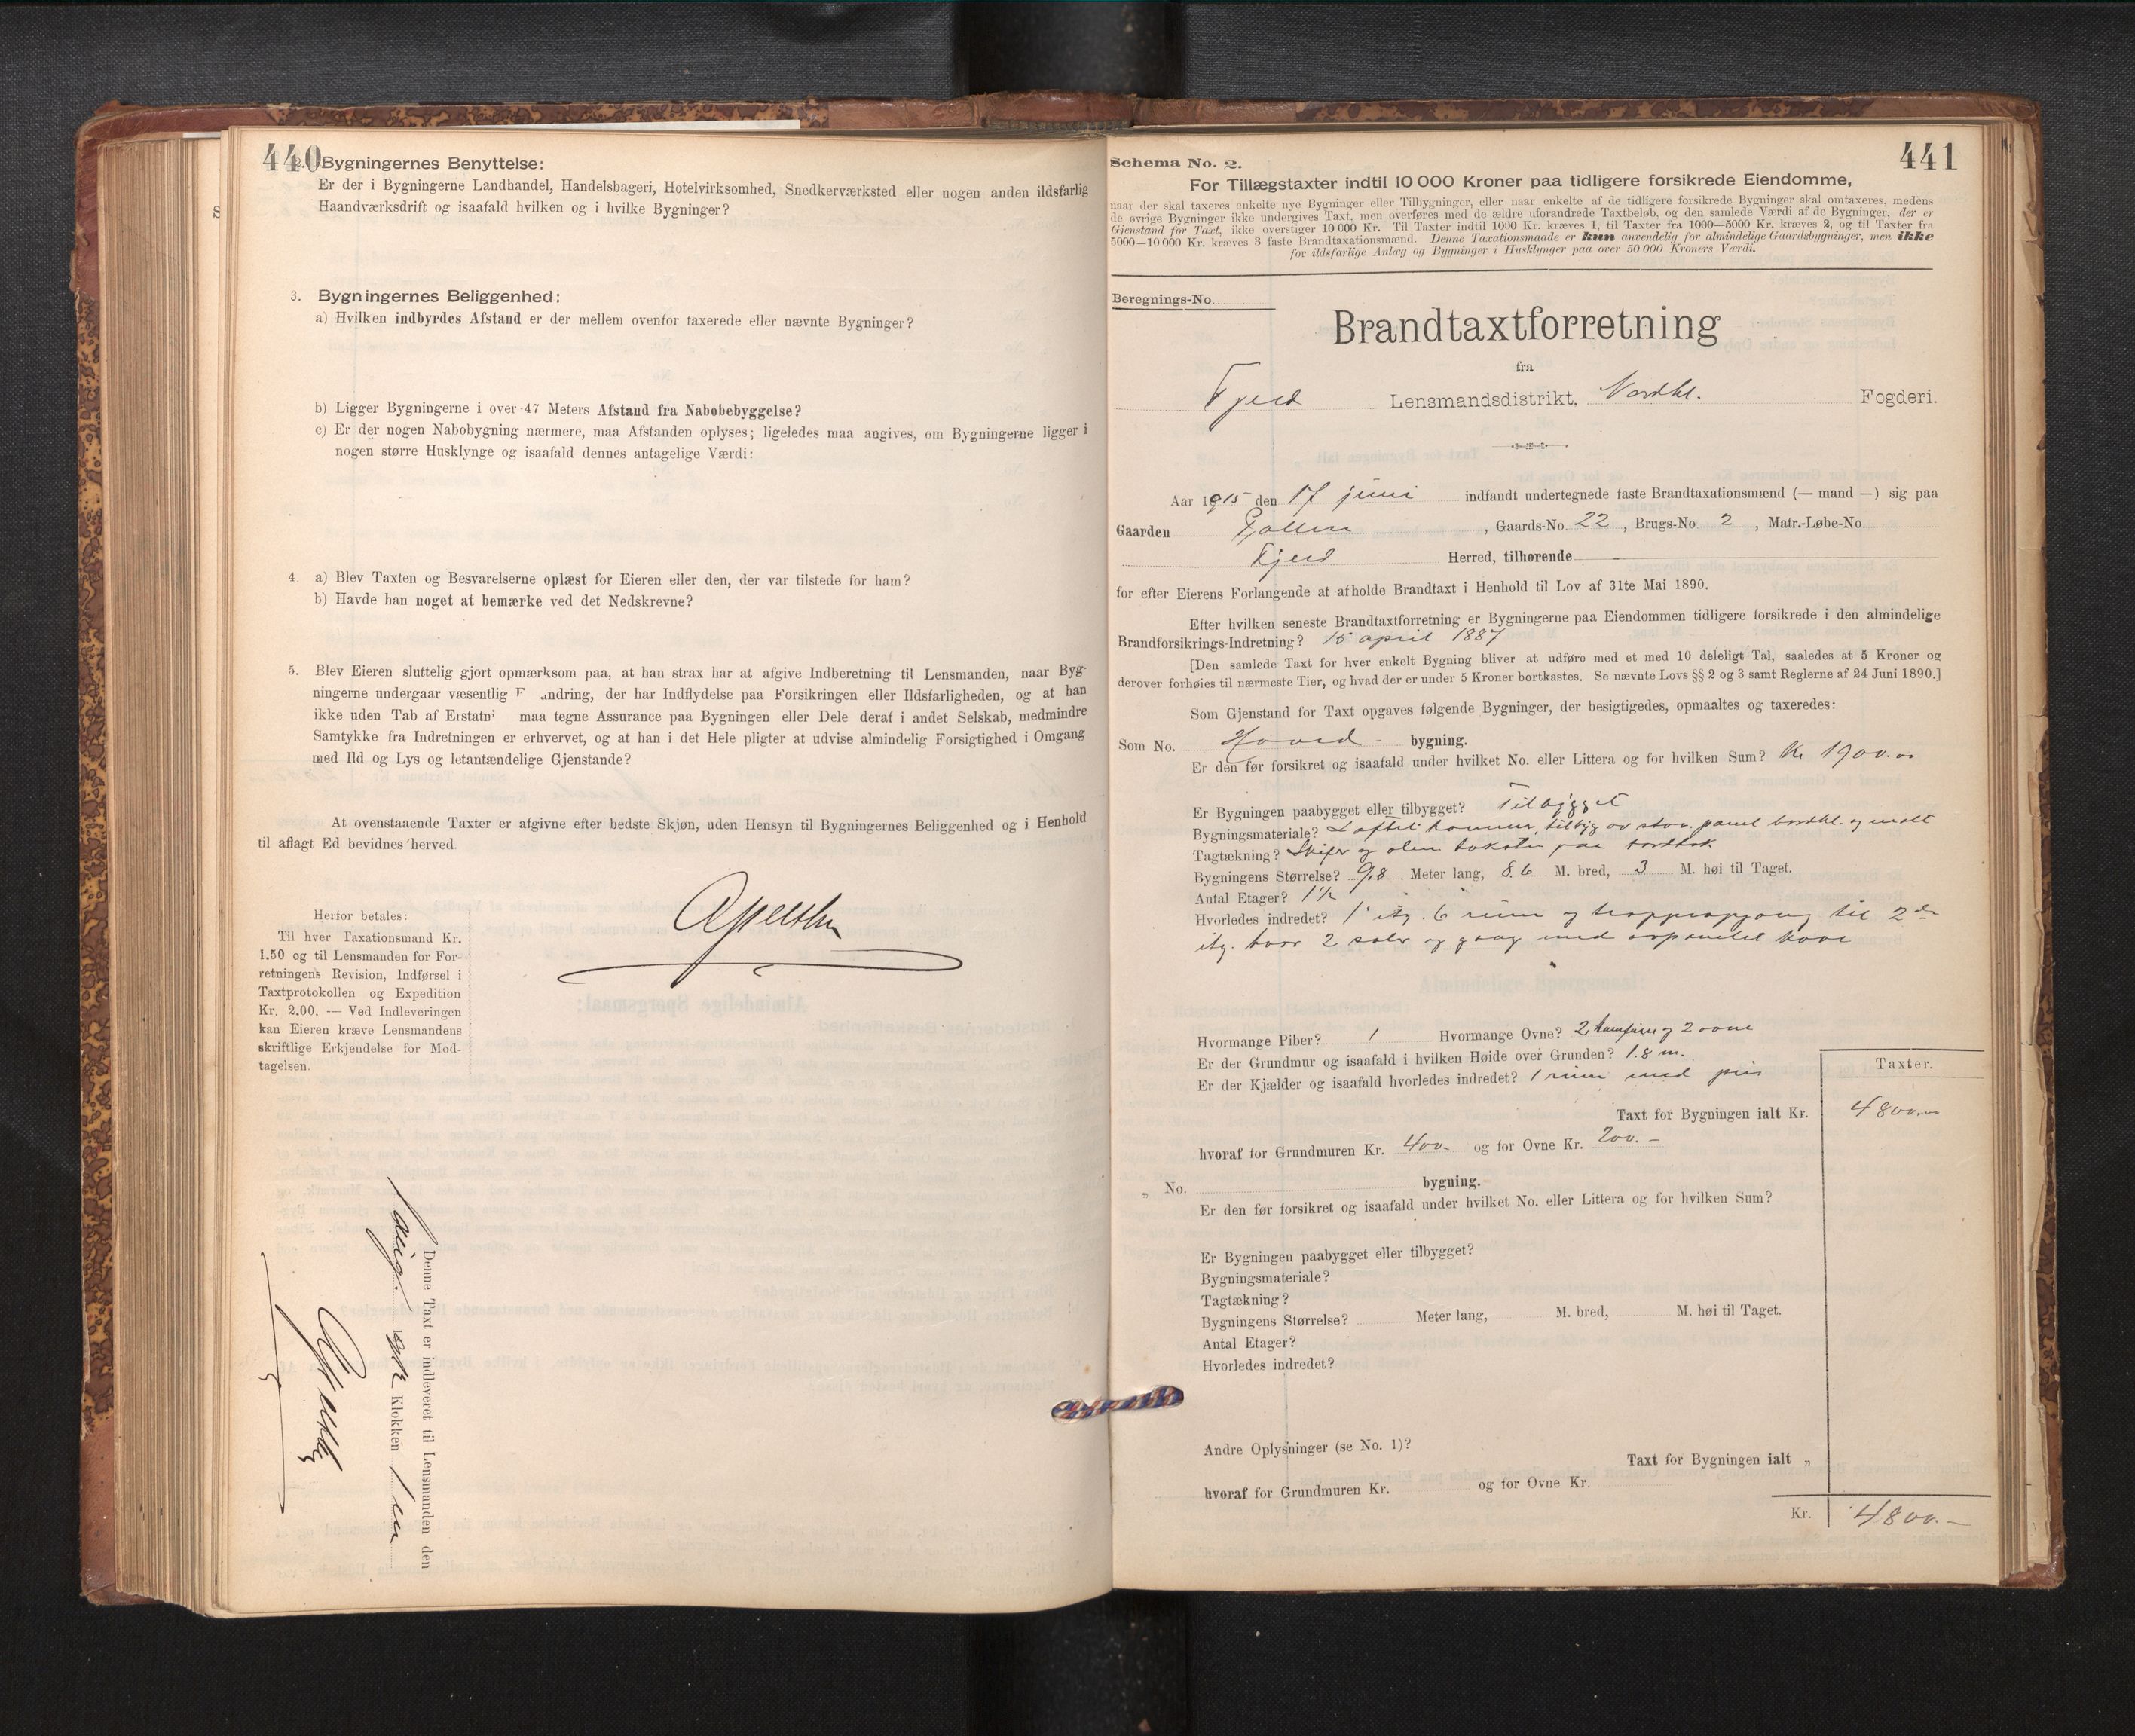 440
2. Bygningernes Benyttelse:
Er der i Bygningerne Landhandel, Handelsbageri, Hotelvirksomhed, Snedkerværksted eller nogen anden ildsfarlig
Haandværksdrift og isaafald hvilken og i hvilke Bygninger?
3. Bygningernes Beliggenhed:
a) Hvilken indbyrdes Afstand er der mellem ovenfor taxerede eller nævnte Bygninger?
b) Ligger Bygningerne i over 47 Meters Afstand fra Nabobebyggelse?
c) Er der nogen Nabobygning nærmere, maa Afstanden oplyses; ligeledes maa angives, om Bygningerne ligger i
nogen større Husklynge og isaafald dennes antagelige Værdi:
4. a) Blev Taxten og Besvarelserne oplæst for Eieren eller den, der var tilstede for ham?
b) Havde han noget at bemærke ved det Nedskrevne?
5. Blev Eieren sluttelig gjort opmærksom paa, at han strax har at afgive Indberetning til Lensmanden, naar Byg-
ningerne undergaar væsentlig F andring, der har Indflydelse paa Forsikringen eller Ildsfarligheden, og at han
ikke uden Tab af Erstatn maa tegne Assurance paa Bygningen eller Dele deraf i andet Selskab, medmindre
Samtykke fra Indretningen er erhvervet, og at han i det Hele pligter at udvise almindelig Forsigtighed i Omgang
med Ild og Lys og letantændelige Gjenstande?
At ovenstaaende Taxter er afgivne efter bedste Skjøn, uden Hensyn til Bygningernes Beliggenhed og i Henhold
til aflagt Ed bevidnes herved.
Herfor betales:
Til hver Taxationsmand Kr.
1.50 og til Lensmanden for For-
retningens Revision, Indførsel i
Taxtprotokollen og Expedition
Kr. 2.00. — Ved Indleveringen
kan Eieren kræve Lensmandens
skriftlige Erkjendelse for Mod-
tagelsen.
Denne Taxt er indleveret til Lensmanden den
Klokken
441
Schema No. 2.
For Tillægstaxter indtil 10 000 Kroner paa tidligere forsikrede Eiendomme,
naar der skal taxeres enkelte nye Bygninger eller Tilbygninger, eller naar enkelte af de tidligere forsikrede Bygninger skal omtaxeres, medens
de øvrige Bygninger ikke undergives Taxt, men overføres med de ældre uforandrede Taxtbeløb, og den samlede Værdi af de Bygninger, der er
Gjenstand for Taxt, ikke overstiger 10 000 Kr. Til Taxter indtil 1000 Kr. kræves 1, til Taxter fra 1000—5000 Kr. kræves 2, og til Taxter fra
5000—10 000 Kr. kræves 3 faste Brandtaxationsmænd. Denne Taxationsmaade er kun anvendelig for almindelige Gaardsbygninger, men ikke
for ildsfarlige Anlæg og Bygninger i Husklynger paa over 50 000 Kroners Værdi.
Beregnings-No.
Brandtaxtforretning
fra
Fjeld Lensmandsdistrikt, Nordhl. Fogderi.
Aar 1915 den 17 juni indfandt undertegnede faste Brandtaxationsmænd (— mand —) sig paa
Gaarden , Gaards-No. 22 , Brugs-No 2 , Matr.-Løbe-No.
Fjeld Herred, tilhørende
for efter Eierens Forlangende at afholde Brandtaxt i Henhold til Lov af 31te Mai 1890.
Efter hvilken seneste Brandtaxtforretning er Bygningerne paa Eiendommen tidligere forsikrede i den almindelige
Brandforsikrings-Indretning? 15 april 1887
[Den samlede Taxt for hver enkelt Bygning bliver at udføre med et med 10 deleligt Tal, saaledes at 5 Kroner og
derover forhøies til nærmeste Tier, og hvad der er under 5 Kroner bortkastes. Se nævnte Lovs §§ 2 og 3 samt Reglerne af 24 Juni 1890.]
Som Gjenstand for Taxt opgaves følgende Bygninger, der besigtigedes, opmaaltes og taxeredes:
Som No. Hoved bygning.
Er den før forsikret og isaafald under hvilket No. eller Littera og for hvilken Sum? Kr 1900.00
Er Bygningen paabygget eller tilbygget? Tilbygget
Bygningsmateriale? Laftet tømmer, tilbyg av stav. panel bordkl. og malt
Tagtækning? Skifer og paa bordtak
Bygningens Størrelse? 9,8 Meter lang, 8.6 M. bred, 3 M. høi til Taget.
Antal Etager? 1½
Hvorledes indredet? 1 etg. 6 rum og trappeopgang til 2den
etg. hvor 2 saler og gang med
Hvormange Piber? 1 Hvormange Ovne? 2 kaminer og 2 ovne
Er der Grundmur og isaafald i hvilken Høide over Grunden? 1.8 m.
Er der Kjælder og isaafald hvorledes indredet? 1 rum med
Taxter.
Taxt for Bygningen ialt Kr. 4800.—
hvoraf for Grundmuren Kr. 400.- og for Ovne Kr. 200.—
„ No. bygning.
Er den før forsikret og isaafald under hvilket No. eller Littera og for hvilken Sum?
Er Bygningen paabygget eller tilbygget?
Bygningsmateriale?
Tagtækning?
Bygningens Størrelse? Meter lang, M. bred, M. høi til Taget.
Antal Etager?
Hvorledes indredet?
Andre Oplysninger (se No. 1)?
Taxt for Bygningen ialt „
hvoraf for Grundmuren Kr. og for Ovne Kr.
Kr. 4800.—